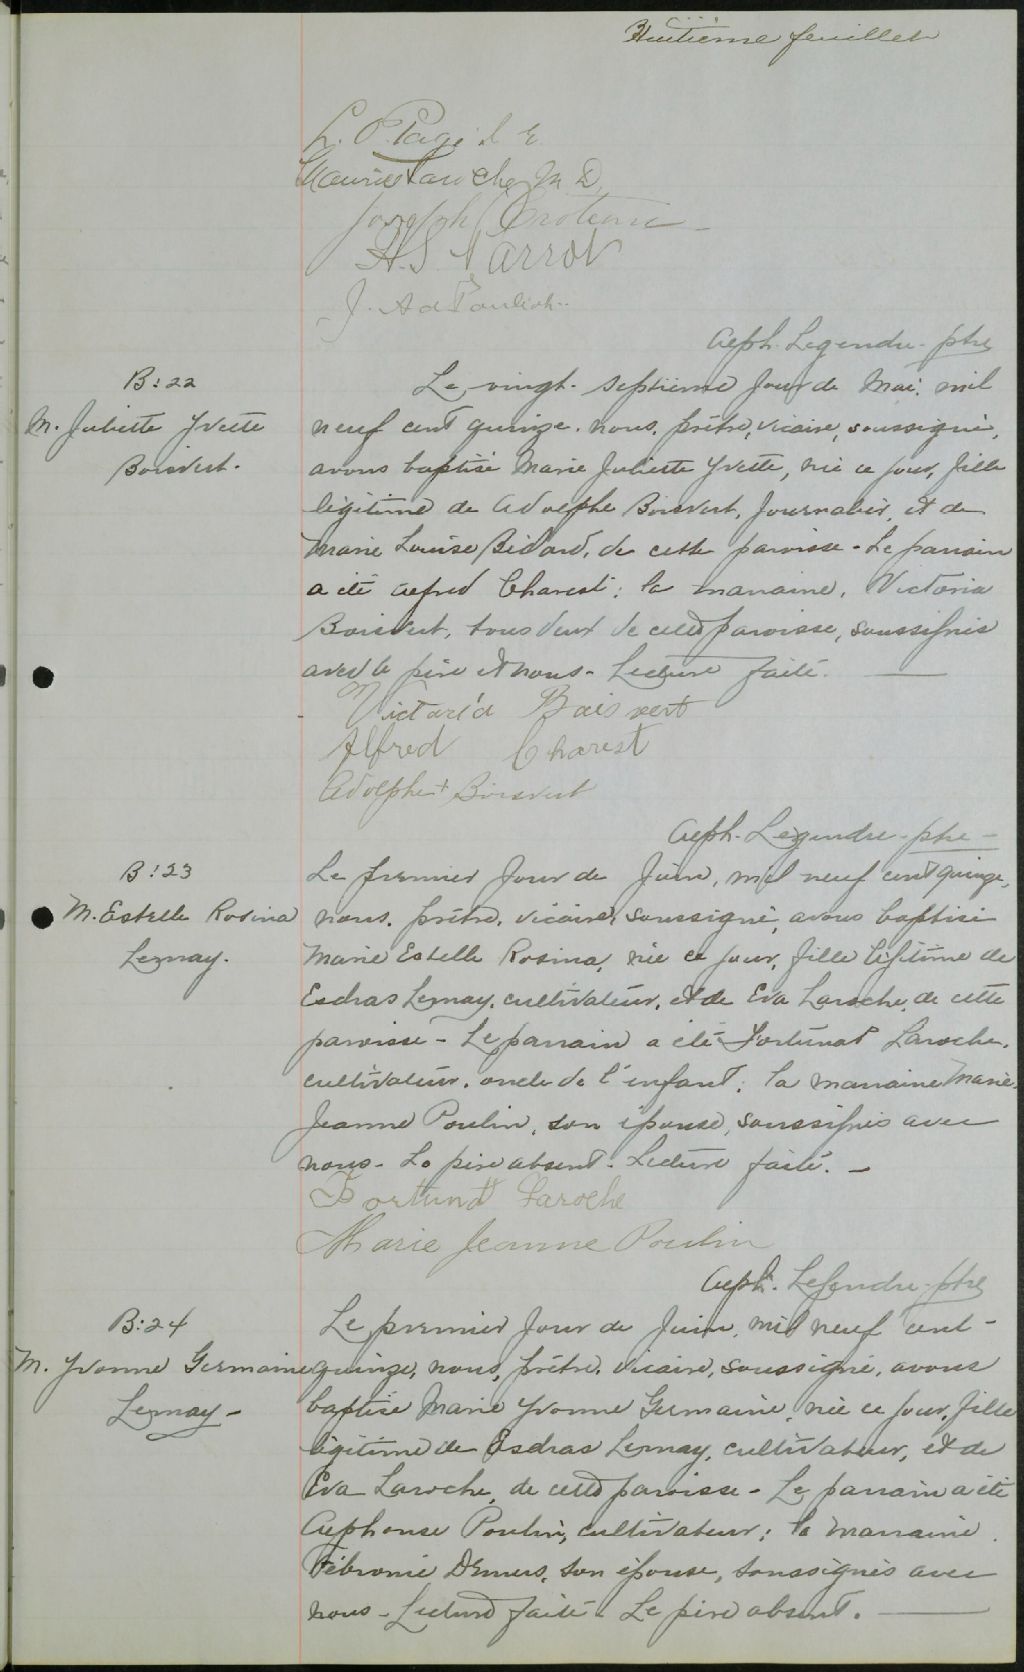 Huitième feuillet
L. P. Pagé
Maurice Laroche M. D.
Joseph Croteau
J. Ad Poulin
Alph. Legendre ptre
B: 22
M. Juliette Yvette
Boisvert.
Le vingt-septième jour de Mai, mil
neuf cent quinze, nous, prêtre, vicaire, soussigné,
avons baptisé Marie Juliette Yvette, née ce jour, fille
légitime de Adolphe Boisvert, journalier, et de
Marie Louise Bédard, de cette paroisse - Le parrain
a été Alfred Charest; la marraine, Victoria
Boisvert, tous deux de cette paroisse, soussignés
avec le père et nous - Lecture faite.
Victoria Boisvert
Alfred Charest
Adolphe + Boisvert
Alph. Legendre - ptre -
B: 23
M. Estelle Rosina
Lemay.
Le premier jour de Juin, mil neuf cent quinze,
nous, prêtre, vicaire, soussigné, avons baptisé
Marie Estelle Rosina, née ce jour, fille légitime de
Esdras Lemay, cultivateur, et de Eva Laroche, de cette
paroisse - Le parrain a été Fortunat Laroche,
cultivateur, oncle de l'enfant; la marraine Marie
Jeanne Poulin, son épouse, soussignés avec
nous - Le père absent. Lecture faite. -
Fortunat Laroche
Marie Jeanne Poulin
Alph. Legendre - ptre
B: 24
M. Yvonne Germaine
Lemay -
Le premier jour de Juin, mil neuf cent-
quinze, nous, prêtre, vicaire, soussigné, avons
baptisé Marie Yvonne Germaine, née ce jour, fille
légitime de Esdras Lemay, cultivateur, et de
Eva Laroche, de cette paroisse - Le parrain a été
Alphonse Poulin, cultivateur; la marraine
Fébronie Demers, son épouse, soussignés avec
nous - Lecture faite - Le père absent.